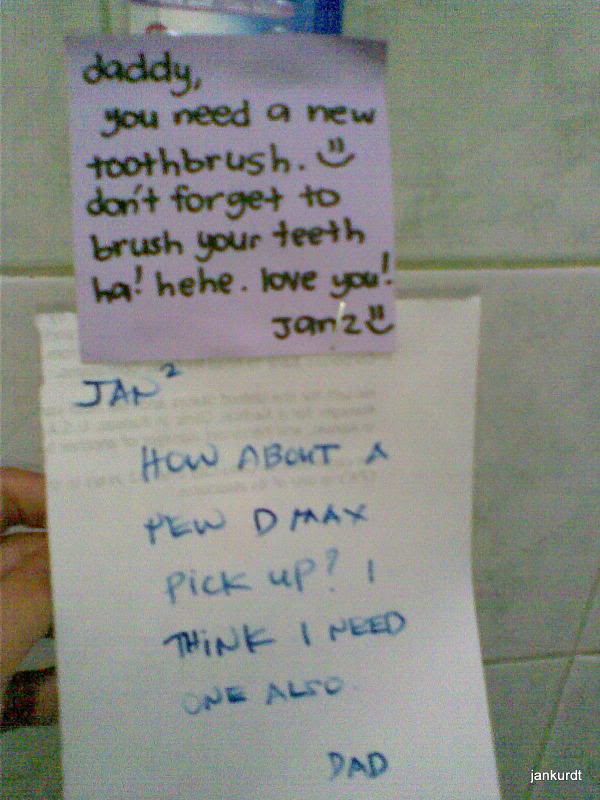 daddy,
you need a new
toothbrush.
don't forget to
brush your teeth
ha! hehe. love you!
Jan2
JAN²
HOW ABOUT A
NEW D MAX
PICK UP? I
THINK I NEED
ONE ALSO.
DAD
jankurdt